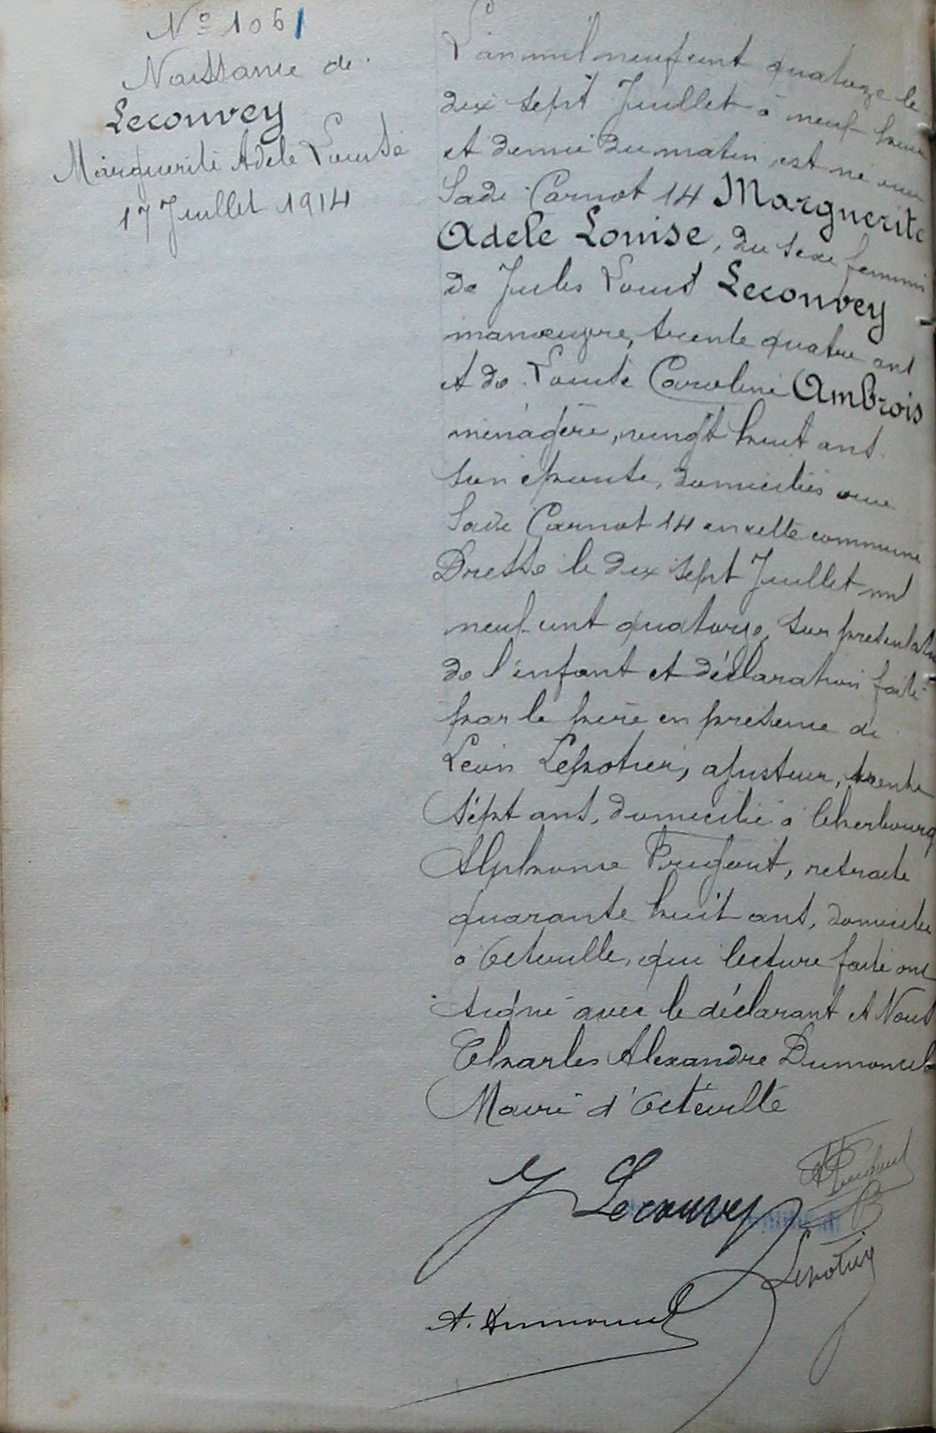 Nº 106
Naissance de
Lecouvey
Marguerite Adele Louise
17 Juillet 1914
L'an mil neuf cent quatorze le
dix sept Juillet à neuf heure
et demie du matin est né rue
Sadi Carnot 14 Marguerite
Adele Louise, du sexe femini
de Jules Louis Lecouvey
manœuvre, trente quatre ans
et de Louise Caroline Ambrois
ménagère, vingt huit ans
son épouse, domiciliés rue
Sadi Carnot 14 en cette commune
Dressé le dix sept Juillet mil
neuf cent quatorze, sur présentation
de l'enfant et déclaration faite
par le père en présence de
Léon Lepotier, ajusteur, trente
sept ans, domicilié à Cherbourg
Alphonse, retraité
quarante huit ans, domicilié
à Octeville, qui lecture faite ont
signé avec le déclarant et Nous
Charles Alexandre Dumoncel
Maire d'Octeville
J Lecouvey
Lepotier
A. Dumoncel